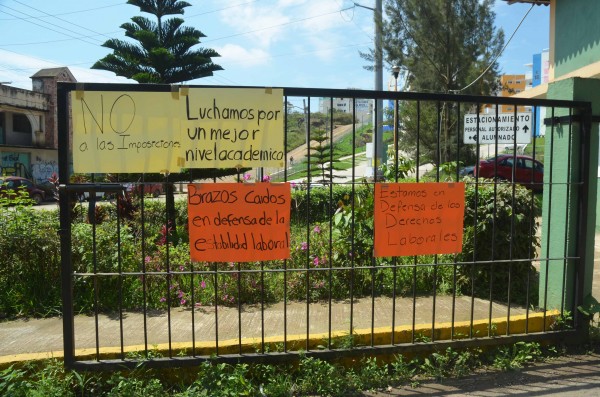 NO
a las Imposiciones
Luchamos por
un mejor
nivel academico
ESTACIONAMIENTO
PERSONAL AUTORIZADO
Y
ALUMNADO
Brazos Caidos
en defensa de la
estibilidad laboral
Estamos en
Defensa de los
Derechos
Laborales